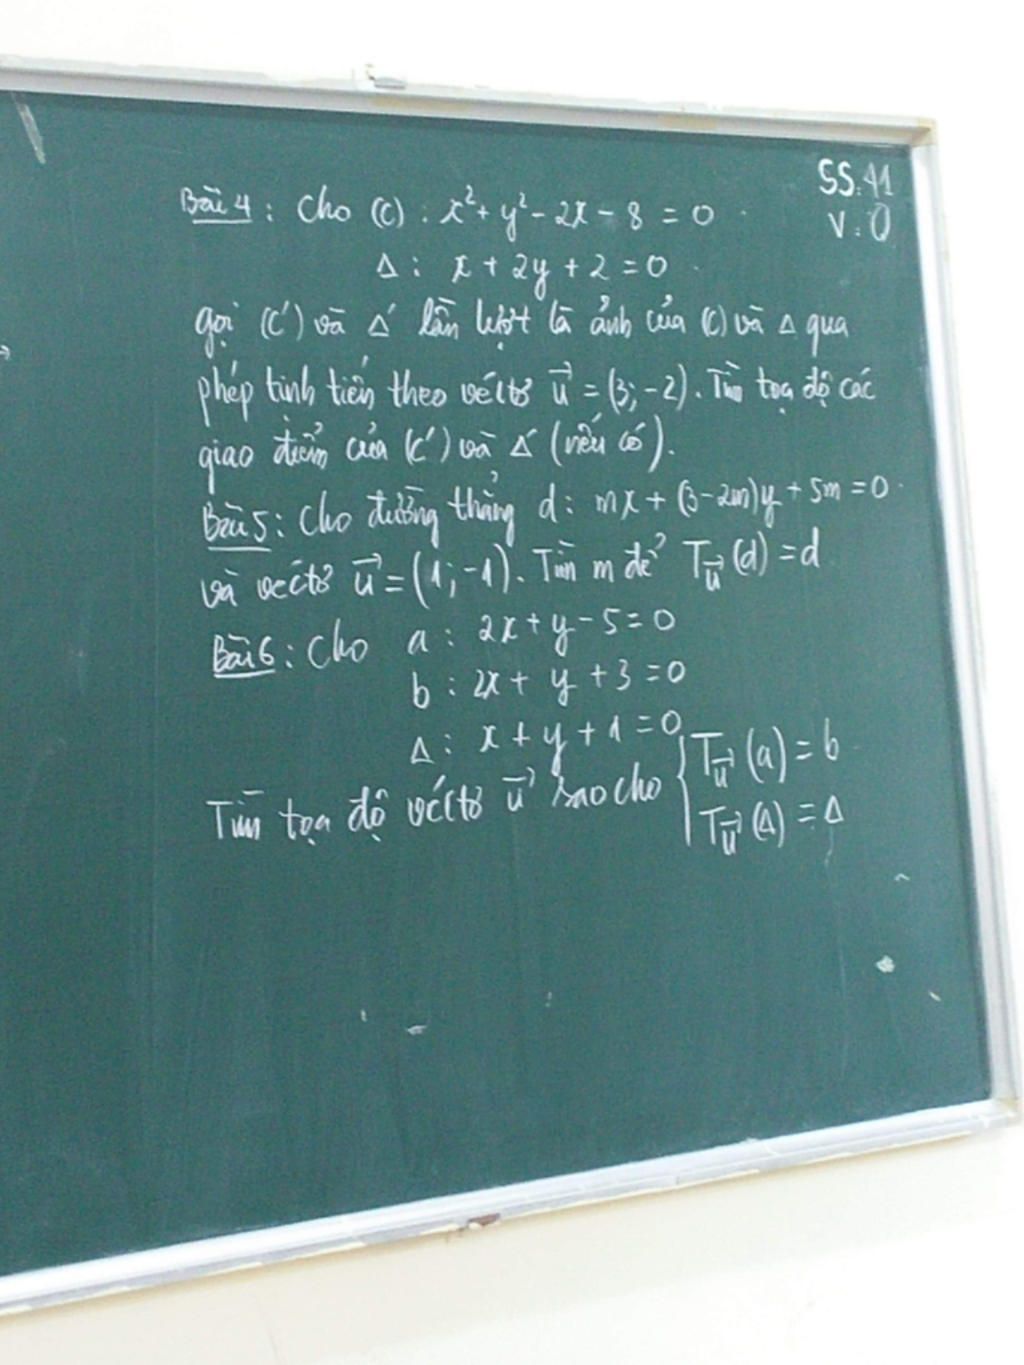 SS: 41
V: 0
Bài 4: Cho (C): x² + y² - 2x - 8 = 0
Δ: x + 2y + 2 = 0
gọi (C') và Δ' lần lượt là ảnh của (C) và Δ qua
phép tịnh tiến theo véctơ u⃗ = (3; -2). Tìm tọa độ các
giao điểm của (C') và Δ' (nếu có).
Bài 5: Cho đường thẳng d: mx + (3-2m)y + 5m = 0
và véctơ u⃗ = (1; -1). Tìm m để T_u⃗ (d) = d
Bài 6: Cho a: 2x + y - 5 = 0
b: 2x + y + 3 = 0
Δ: x + y + 1 = 0
Tìm tọa độ véctơ u⃗ sao cho { T_u⃗ (a) = b
T_u⃗ (Δ) = Δ